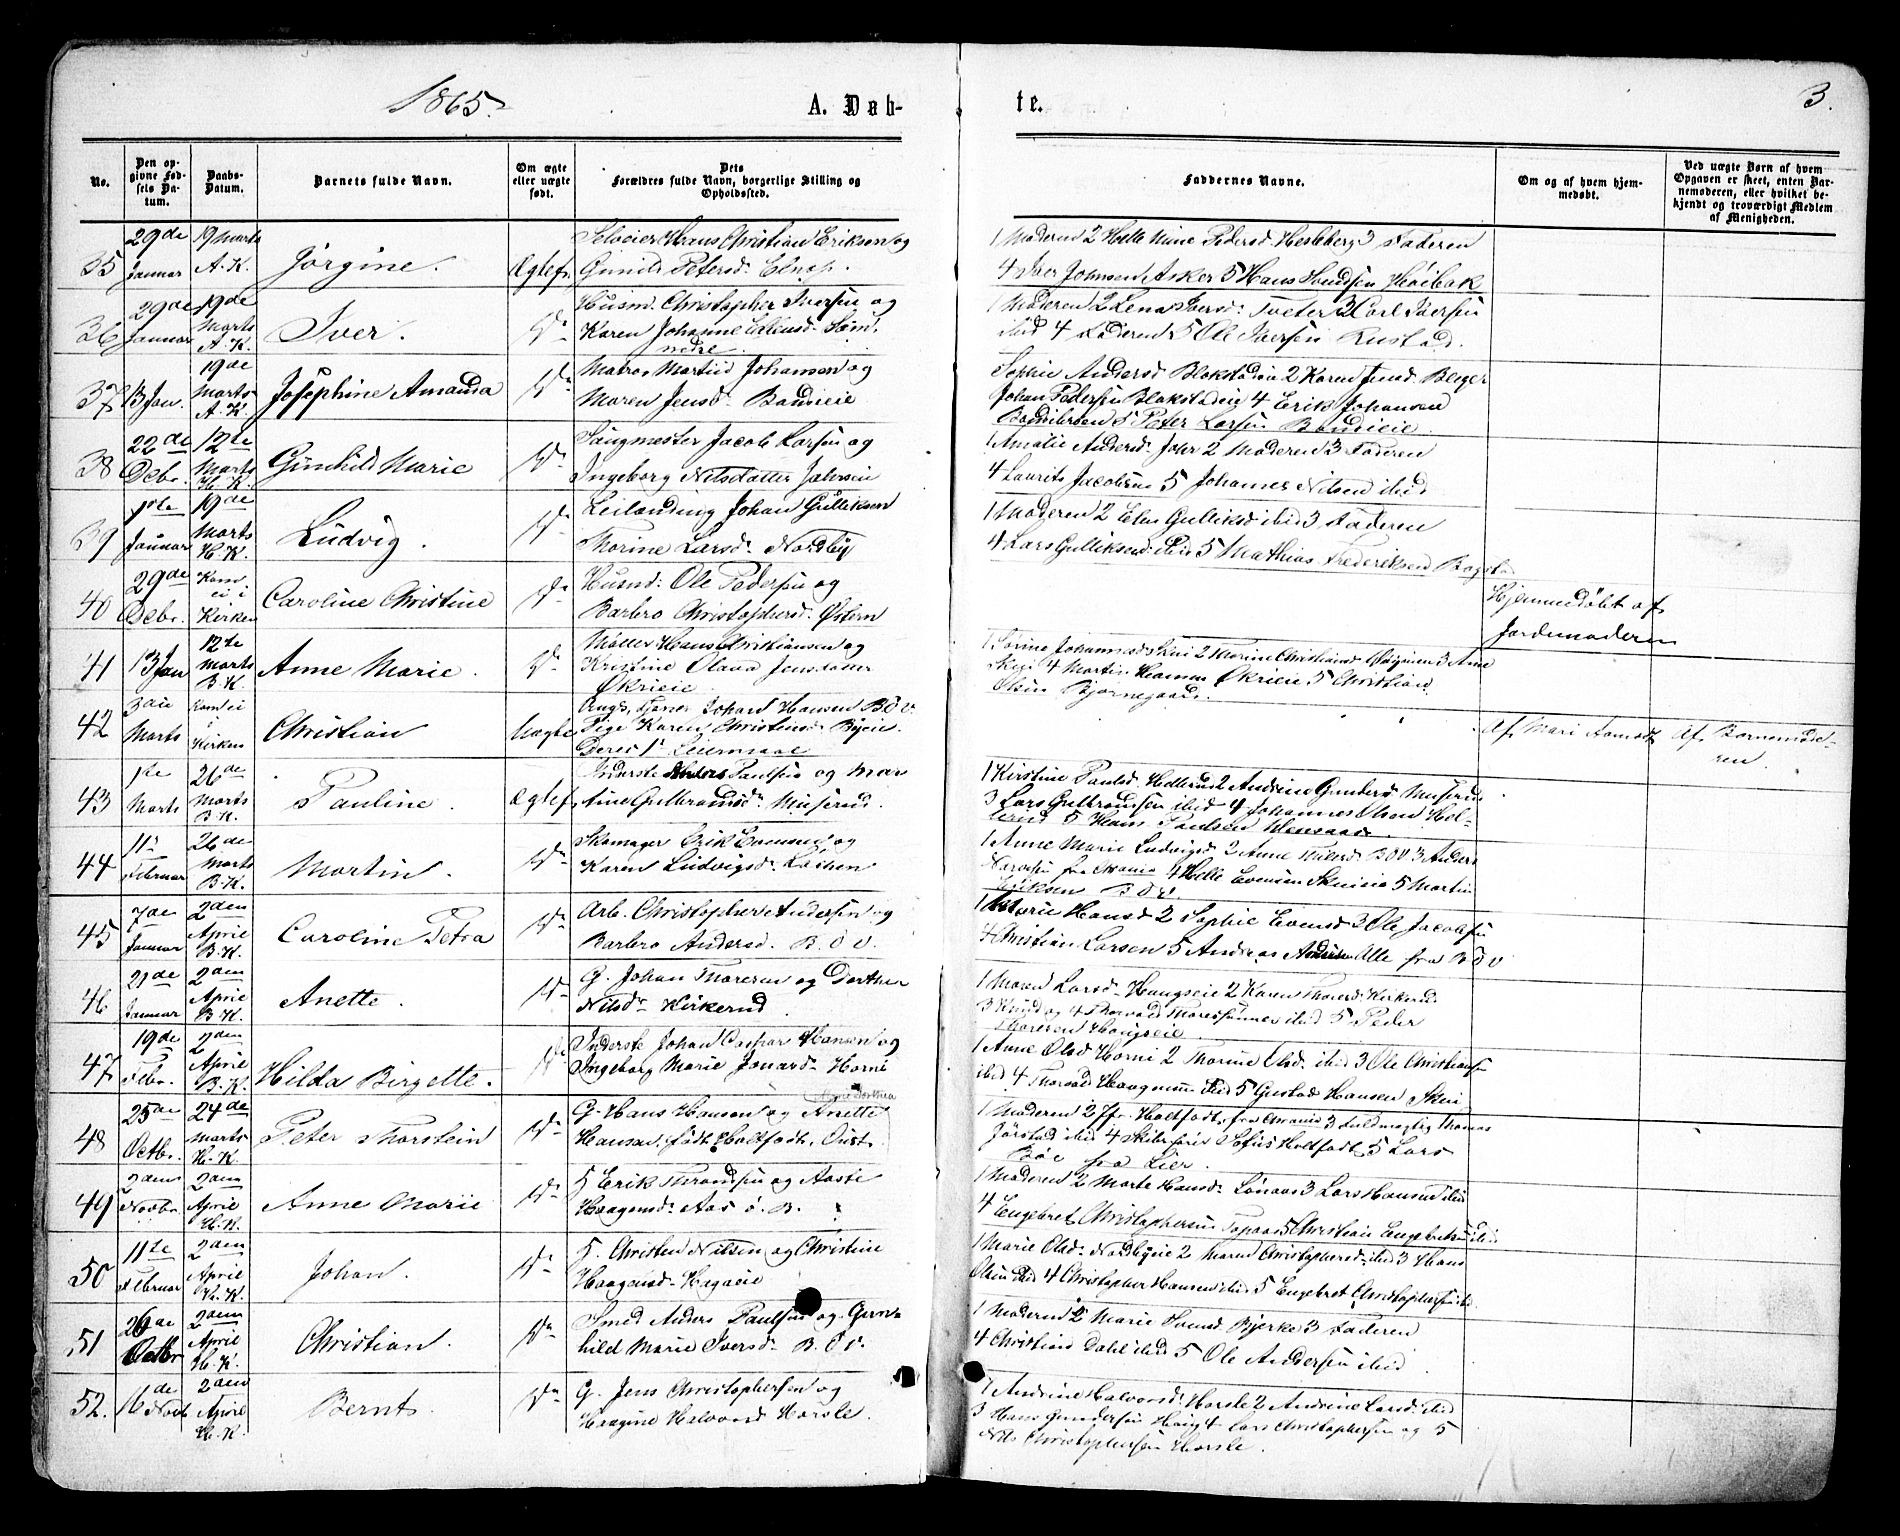 1865.
A. Døb-
te.
3.
No.
Den op-
givne Fød-
sels Da-
tum.
Daabs-
Datum.
Barnets fulde Navn.
Om ægte
eller uægte
født.
Dets
Forældres fulde Navn, borgerlige Stilling og
Opholdssted.
Faddernes Navne.
Om og af hvem hjem-
medøbt.
Ved uægte Børn af hvem
Opgaven er skeet, enten Bar-
nemoderen, eller hvilket be-
kjendt og troværdigt Medlem
af Menigheden.
35
29de
Januar
19 Marts
A. K.
Jørgine.
Ægtef.
Selveier Hans Christian Eriksen og
Gunild Petersd.
1 Moderen 2 Helle Mine Pedersd. Hesleberg 3 Faderen
4 Iver Johnsen Asker 5 Hans
36
29de
Januar
19de
Marts
A. K.
Iver.
Do
Husm. Christopher Iversen og
Karen Johanne
nedre
1 Moderen 2 Lena Iversd. Tveter 3 Carl Iversen
ibid 4 Faderen 5 Ole Iversen Rustad.
37
13 Jan.
19de
Marts
A. K.
Josephine Amanda
Do
Matros Martin Johansen og
Maren Jensd.
Sophie Andersd Blakstadeie 2 Karen Jensd
Johan Pedersen Blakstadeie 4 Erik Johansen
5 Peter Larsen
38
22de
Debr.
12te
Marts
H. K.
Gunhild Marie
Do
Saugmester Jacob Larsen og
Ingeborg Nilsdatter
1 Amalie Andersd. 2 Moderen 3 Faderen
4 Laurits Jacobsen 5 Johannes Nilsen ibid
39
1ste
Januar
19de
Marts
H. K.
Ludvig.
Do
Leilænding Johan Gulliksen
Thorine Larsd. Nordby
1 Moderen 2 Elen Gulliksd ibid 3 Faderen
4 Lars Gulliksen ibid 5 Mathias Frederiksen
40
29de
Debr.
Kom
ei i
Kirken
Caroline Christine
Do
Husmd: Ole Pedersen og
Barbro Christophersd. Østern
Hjemmedøbt af
Jordemoderen
41
13 Jan
12te
Marts
B. K.
Anne Marie.
Do
Møller Hans Christiansen og
Kristine Olava Jensdatter
Økrieie
1 Karine Johannesd Skui 2 Marine Christiansd 3 Anne
Skui 4 Martin Hansen Økrieie 5 Christian
Olsen Bjørnegaard.
42
3die
Marts
Kom ei
i
Kirken
Christian
Uægte
Johan Hansen B Ø V.
Pige Karen Christensd. Byeie
Deres 1ste Leiermaal
Af Mari Aamodt
Af Barnemode-
ren.
43
1ste
Marts
26de
Marts
B. K.
Pauline.
Ægtef.
Inderste Anders Paulsen og Mar
tine Gulbrandsd. Muserud.
1 Kirstine Paulsd. Hellerud 2 Andrine Gundersd Muserud
3 Lars Gulbrandsen ibid 4 Johannes Olsen Hel-
lerud 5 Hans Paulsen
44
11te
Februar
26de
Marts
B. K.
Martin.
Do
Skomager Erik Evensen og
Karen Ludvigsd.
1 Anne Marie Ludvigsd 2 Anne B Ø V 3 Anders
4 Helle Evensen Skuieie 5 Martin
Eriksen B Ø V.
45
7de
Januar
2den
April
B. K.
Caroline Petra
Do
Arb. Christopher Andersen og
Barbro Andersd. B. Ø V.
1 Marie Hansd 2 Sophie Evensd 3 Ole Jacobsen
4 Christian Larsen 5 Andreas Andersen Alle fra B Ø V
46
21de
Januar
2den
April
B. K.
Anette.
Do
G. Johan Thoresen og Dorthea
Nilsd. Kirkerud
1 Maren Larsd. Haugseie 2 Karen Thoresd. Kirkerud
3 Knud og 4 Thorvald ibid 5 Peder
Thoresen Haugseie
47
19de
Febr.
2den
April
B. K.
Hilda Birgette.
Do
Inderste Johan Caspar Hansen og
Ingeborg Marie Horni
1 Anne Olsd Horni 2 Thorine Olsd. ibid 3 Ole Christiansen
ibid 4 Thorvald ibid 5 Gustav Hansen Skui
48
25de
Octbr.
24de
Marts
H. K.
Peter Thorstein
Do
Dorthea
G. Hans Hansen og Anette
Hansen, født Holtfodt,
1 Moderen 2 Jfr. Holtfodt, fra 3 Fuldmægtig Thomas
Jørstad ibid 4 Sofus Holtfodt 5 Lars
Bøe fra Lier.
49
2den
Novbr.
2den
April
H. K.
Anne Marie
Do
5 Erik og Aaste
Haagensd. Aas ø. B.
1 Moderen 2 Marte Hansd. 3 Lars Hansen ibid
4 Engebret Christophersen 5 Christian Engebretsen ibid
50
11te
Februar
2den
April
H. K.
Johan.
Do
5. Christen Nilsen og Christine
Haagensd. Hagaeie
1 Marie Olsd. Nordbyeie 2 Maren Christophersd. ibid 3 Hans
Olsen ibid 4 Christopher Hansen ibid 5 Engebret Christophersen ibid
51
26de
Octbr
2den
April
H. K.
Christian.
Do
Smed Anders Paulsen og Gun-
hild Marie Iversd. B. Ø V.
1 Moderen 2 Marie Svensd. Bjerke 3 Faderen
4 Christian Dahl ibid 5 Ole Andersen ibid
52.
16de
Novb
2den
April
H. K.
Bernt.
Do
G. Jens Christophersen og
Haagine Halvorsd Horsle.
1 Andrine Halvorsd. Horsle 2 Andrine Larsd. ibid
3 Hans Gundersen Haug 4 Lars Christophersen og 5
Nils Christophersen Horsle.